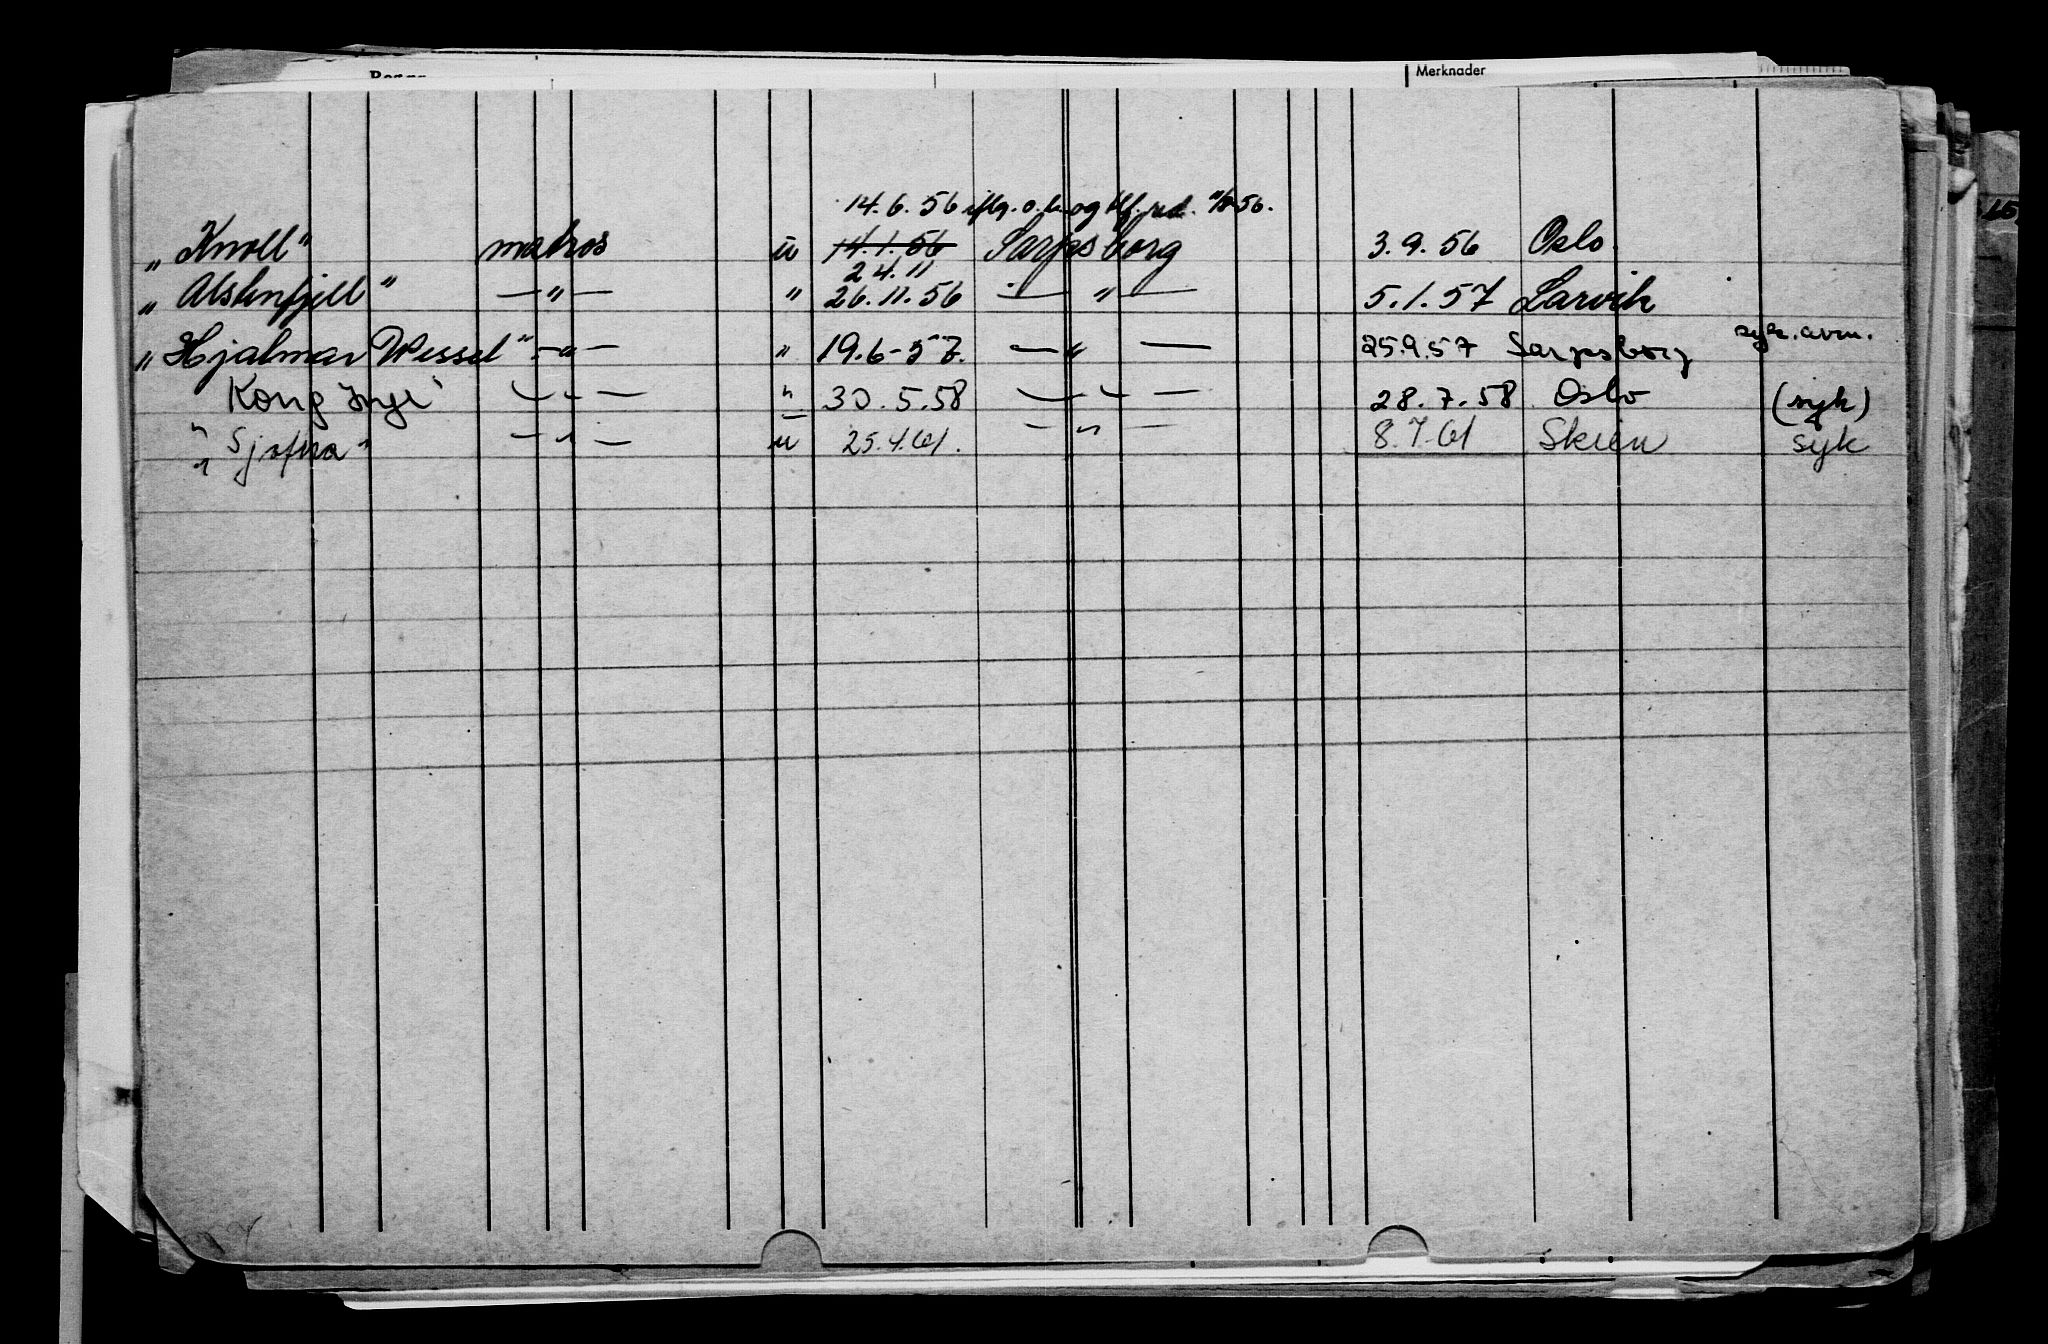 Merknader
14.6.56 iflg. o.b. og tlf. red. 56.
"Knoll" matros u 14.1.56 Sarpsborg 3.9.56 Oslo.
24.11
"Alstenfjell" — " — " 26.11.56 — " — 5.1.57 Larvik
"Hjalmar Wessel" — " — " 19.6-57. — " — 25.9.57 Sarpsborg syk. avm.
"Kong Inge" — " — " 30.5.58 — " — 28.7.58 Oslo (syk)
"Sjofna" — " — u 25.4.61. — " — 8.7.61 Skien syk